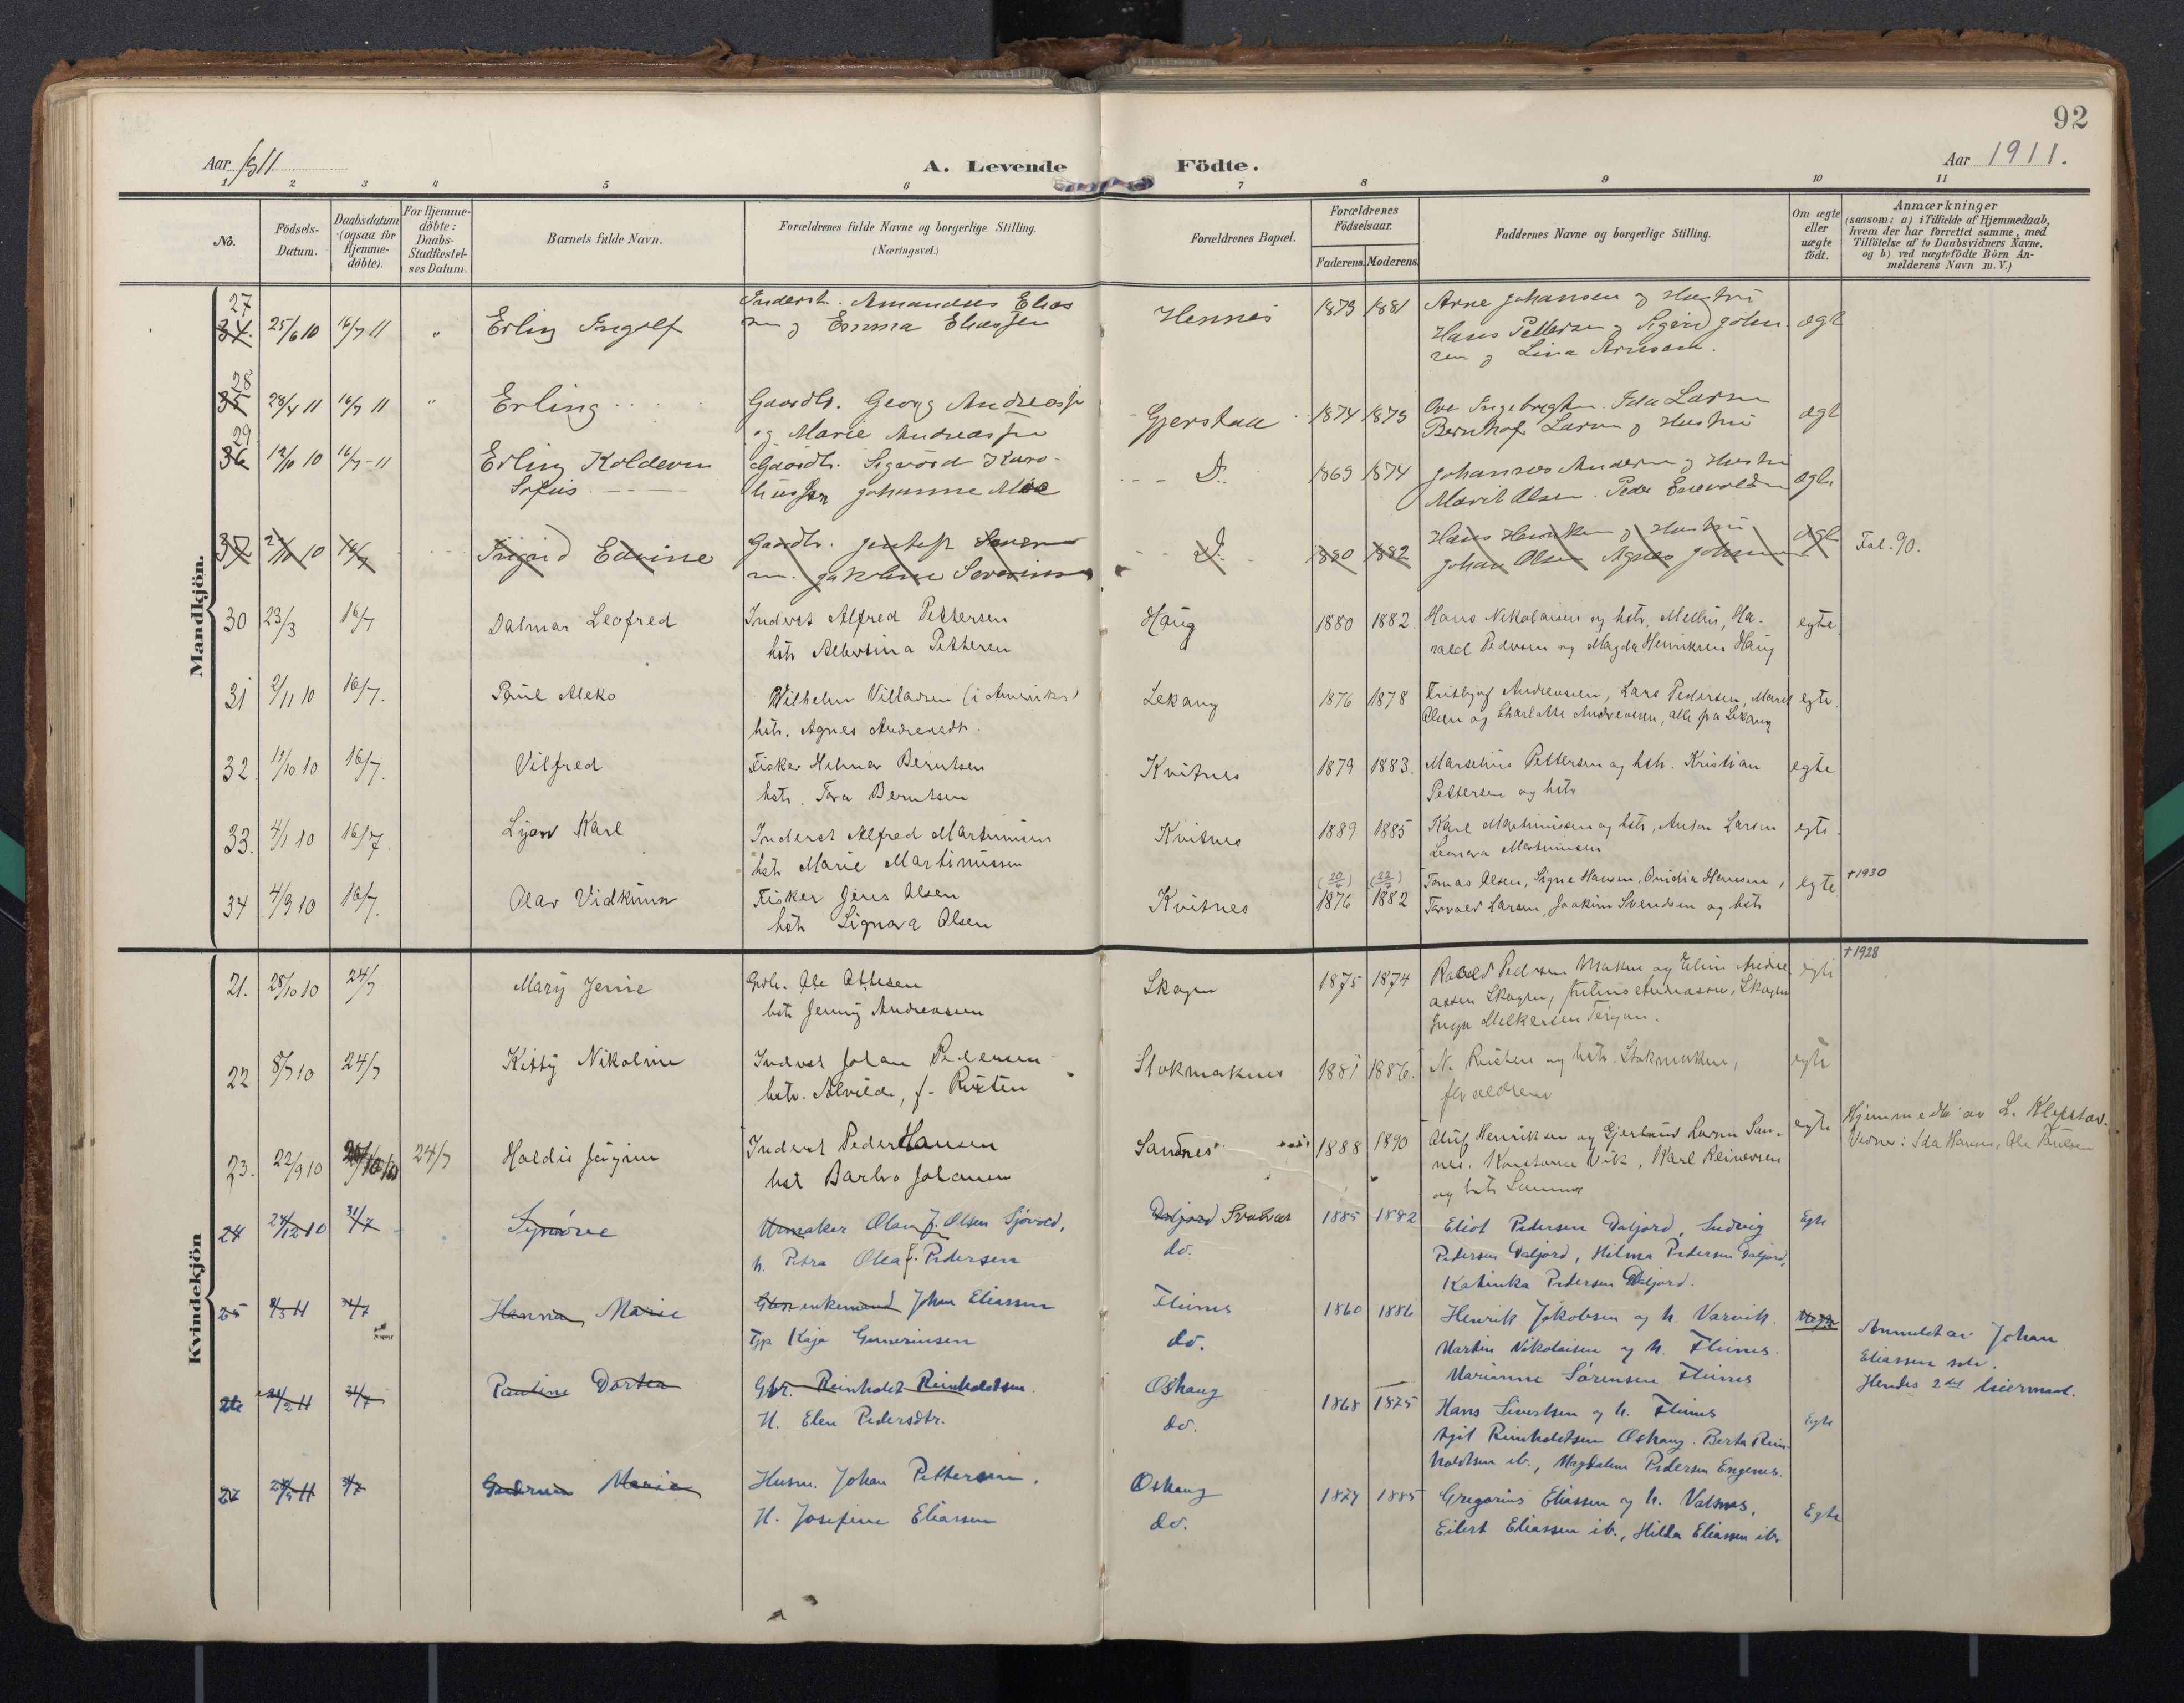 92
Aar 1911
A. Levende Födte.
Aar 1911.
1 2 3 4 5 6 7 8 9 10 11
No.
Födsels-Datum.
Daabsdatum (ogsaa for Hjemme-döbte).
For Hjemme-döbte: Daabs-Stadfæstel-ses Datum.
Barnets fulde Navn.
Forældrenes fulde Navne og borgerlige Stilling.
(Næringsvei.)
Forældrenes Bopæl.
Forældrenes Födselsaar.
Faderens. Moderens.
Faddernes Navne og borgerlige Stilling.
Om ægte eller uægte födt.
Anmærkninger
(saasom: a) i Tilfælde af Hjemmedaab,
hvem der har forrettet samme, med
Tilföielse af to Daabsvidners Navne,
og b) ved uægtefödte Börn An-
melderens Navn m. V.)
Mandkjön.
27
34. 25/6 10 16/7 11 " Erling Ingolf Inderst. Amandus Elias Hennes 1873 1881 Arne Johansen og Hustru ægte
sen og Emma Eliassen Hans Pettersen og Sigrid Johan
sen og Lina Arnesen.
28
35 28/4 11 16/7 11 " Erling Gaardbr. Georg Andreassen Gjerstad 1874 1873 Ove Ingebrigtsen Ida Larsen ægte
og Marie Andreassen Bernhof Larsen og Hustru
29
36 12/10 10 16/7 11 Erling Koldevin Gaardbr. Sigvard Karo- D. 1869 1874 Johannes Andersen og Hustru ægte
Sofus liussen Johanne Moe Marit Olsen. Peder Enevoldsen
37 10 16/7 Ingrid Edvine Gaardbr. D. 1880 1882 Hans Henriksen og Hustru ægte Fol. 90.
Johan Olsen Agnes Johnsen
30 23/3 16/7 Dalmar Leofred Inderst Alfred Pettersen Haug 1880 1882 Hans Nikolaisen og hstr. Melbu, Ha- egte
hstr Albertina Pettersen rald Pedersen og Magda Henriksen Haug
31 2/11 10 16/7. Paul Aleko Wilhelm Villadsen (i Amerika) Lekang 1876 1878 Fritbjof Andreassen, Lars Pedersen, Marit egte.
hstr. Agnes Andreasdtr. Olsen og Charlotte Andreassen, alle fra Lekang
32. 11/10 10 16/7. Vilfred Fisker Hilmar Berntsen Kvitnes 1879 1883. Marselius Pettersen og hstr. Kristian egte
hstr. Tora Berntsen Pettersen og hstr
33. 4/1 10 16/7. Karl Inderst Alfred Martinussen Kvitnes 1889 1885 Karl Martinussen og hstr, Anton Larsen egte.
hstr Marie Martinussen Leonora Martinussen
34 4/9 10 16/7. Olav Vidkunn Fisker Jens Olsen Kvitnes (20/4) 1876 (22/7) 1882 Tomas Olsen, Signe Hansen, Ovidia Hansen, egte +1930
hstr Signora Olsen Torvald Larsen, Joakim Svendsen og hstr
Kvindekjön
21. 28/10 10 24/7 Mary Jenne Grdbr. Ole Ottesen Skogen 1875 1874 Pedersen Maknes og Elina Andre- egte +1928
hstr Jenny Andreassen assen Skogen, Andreassen, Skogen
Inga Melkersen
22 8/7 10 24/7 Kitty Nikoline Inderst Johan Pedersen Stokmarknes 1881 1886. N. Risten og hstr. Stokmarknes, egte
hstr. Alvilde, f. Risten forældrene
23. 22/9 10 24/7 Haldis Jørgine Inderst Peder Hansen Sandnes 1888 1890 Henriksen og Gjertrud Larsen San- egte Hjemmedbt av L. Klepstad.
hst Barbro Johansen nes, Konstanse Vik, Karl Reinertsen Vidner: Ida Hansen, Ole Paulsen
og hstr Sannes
24 24/12 10 31/7 Synnøve Urmaker Olav J. Olsen Sjøvold, Daljord Svolvær 1885 1882 Eliot Pedersen Daljord, Ludvig Egte
h. Petra Olea f. Pedersen do. Pedersen Daljord, Hilma Pedersen Daljord,
Katinka Pedersen Daljord.
25 8/3 11 31/7 Hanna Marie enkemand Johan Eliassen Flines 1860 1886 Henrik Jakobsen og h. Varvik. Uegte Anmeldt av Johan
Kaja do. Martin Nikolaisen og h. Flines. Eliassen selv.
Marianne Sørensen Flines Hendes 2det leiermaal.
26 24/2 11 31/7 Pauline Dortea Gbr. Reinholdt Reinholdtsen Oshaug 1868 1875 Hans Sivertsen og h. Flines Egte
H. Elen Pedersdtr. do. Reinholdtsen Oshaug. Berta Rein-
holdtsen ib., Magdalene Pedersen Engenes.
27 11 31/7 Gudrun Marie Husm. Johan Pettersen. Oshaug 1874 1885 Gregorius Eliassen og h. Valsnes, Egte
H. Josefine Eliassen do. Eilert Eliassen ib., Hilda Eliassen ib.